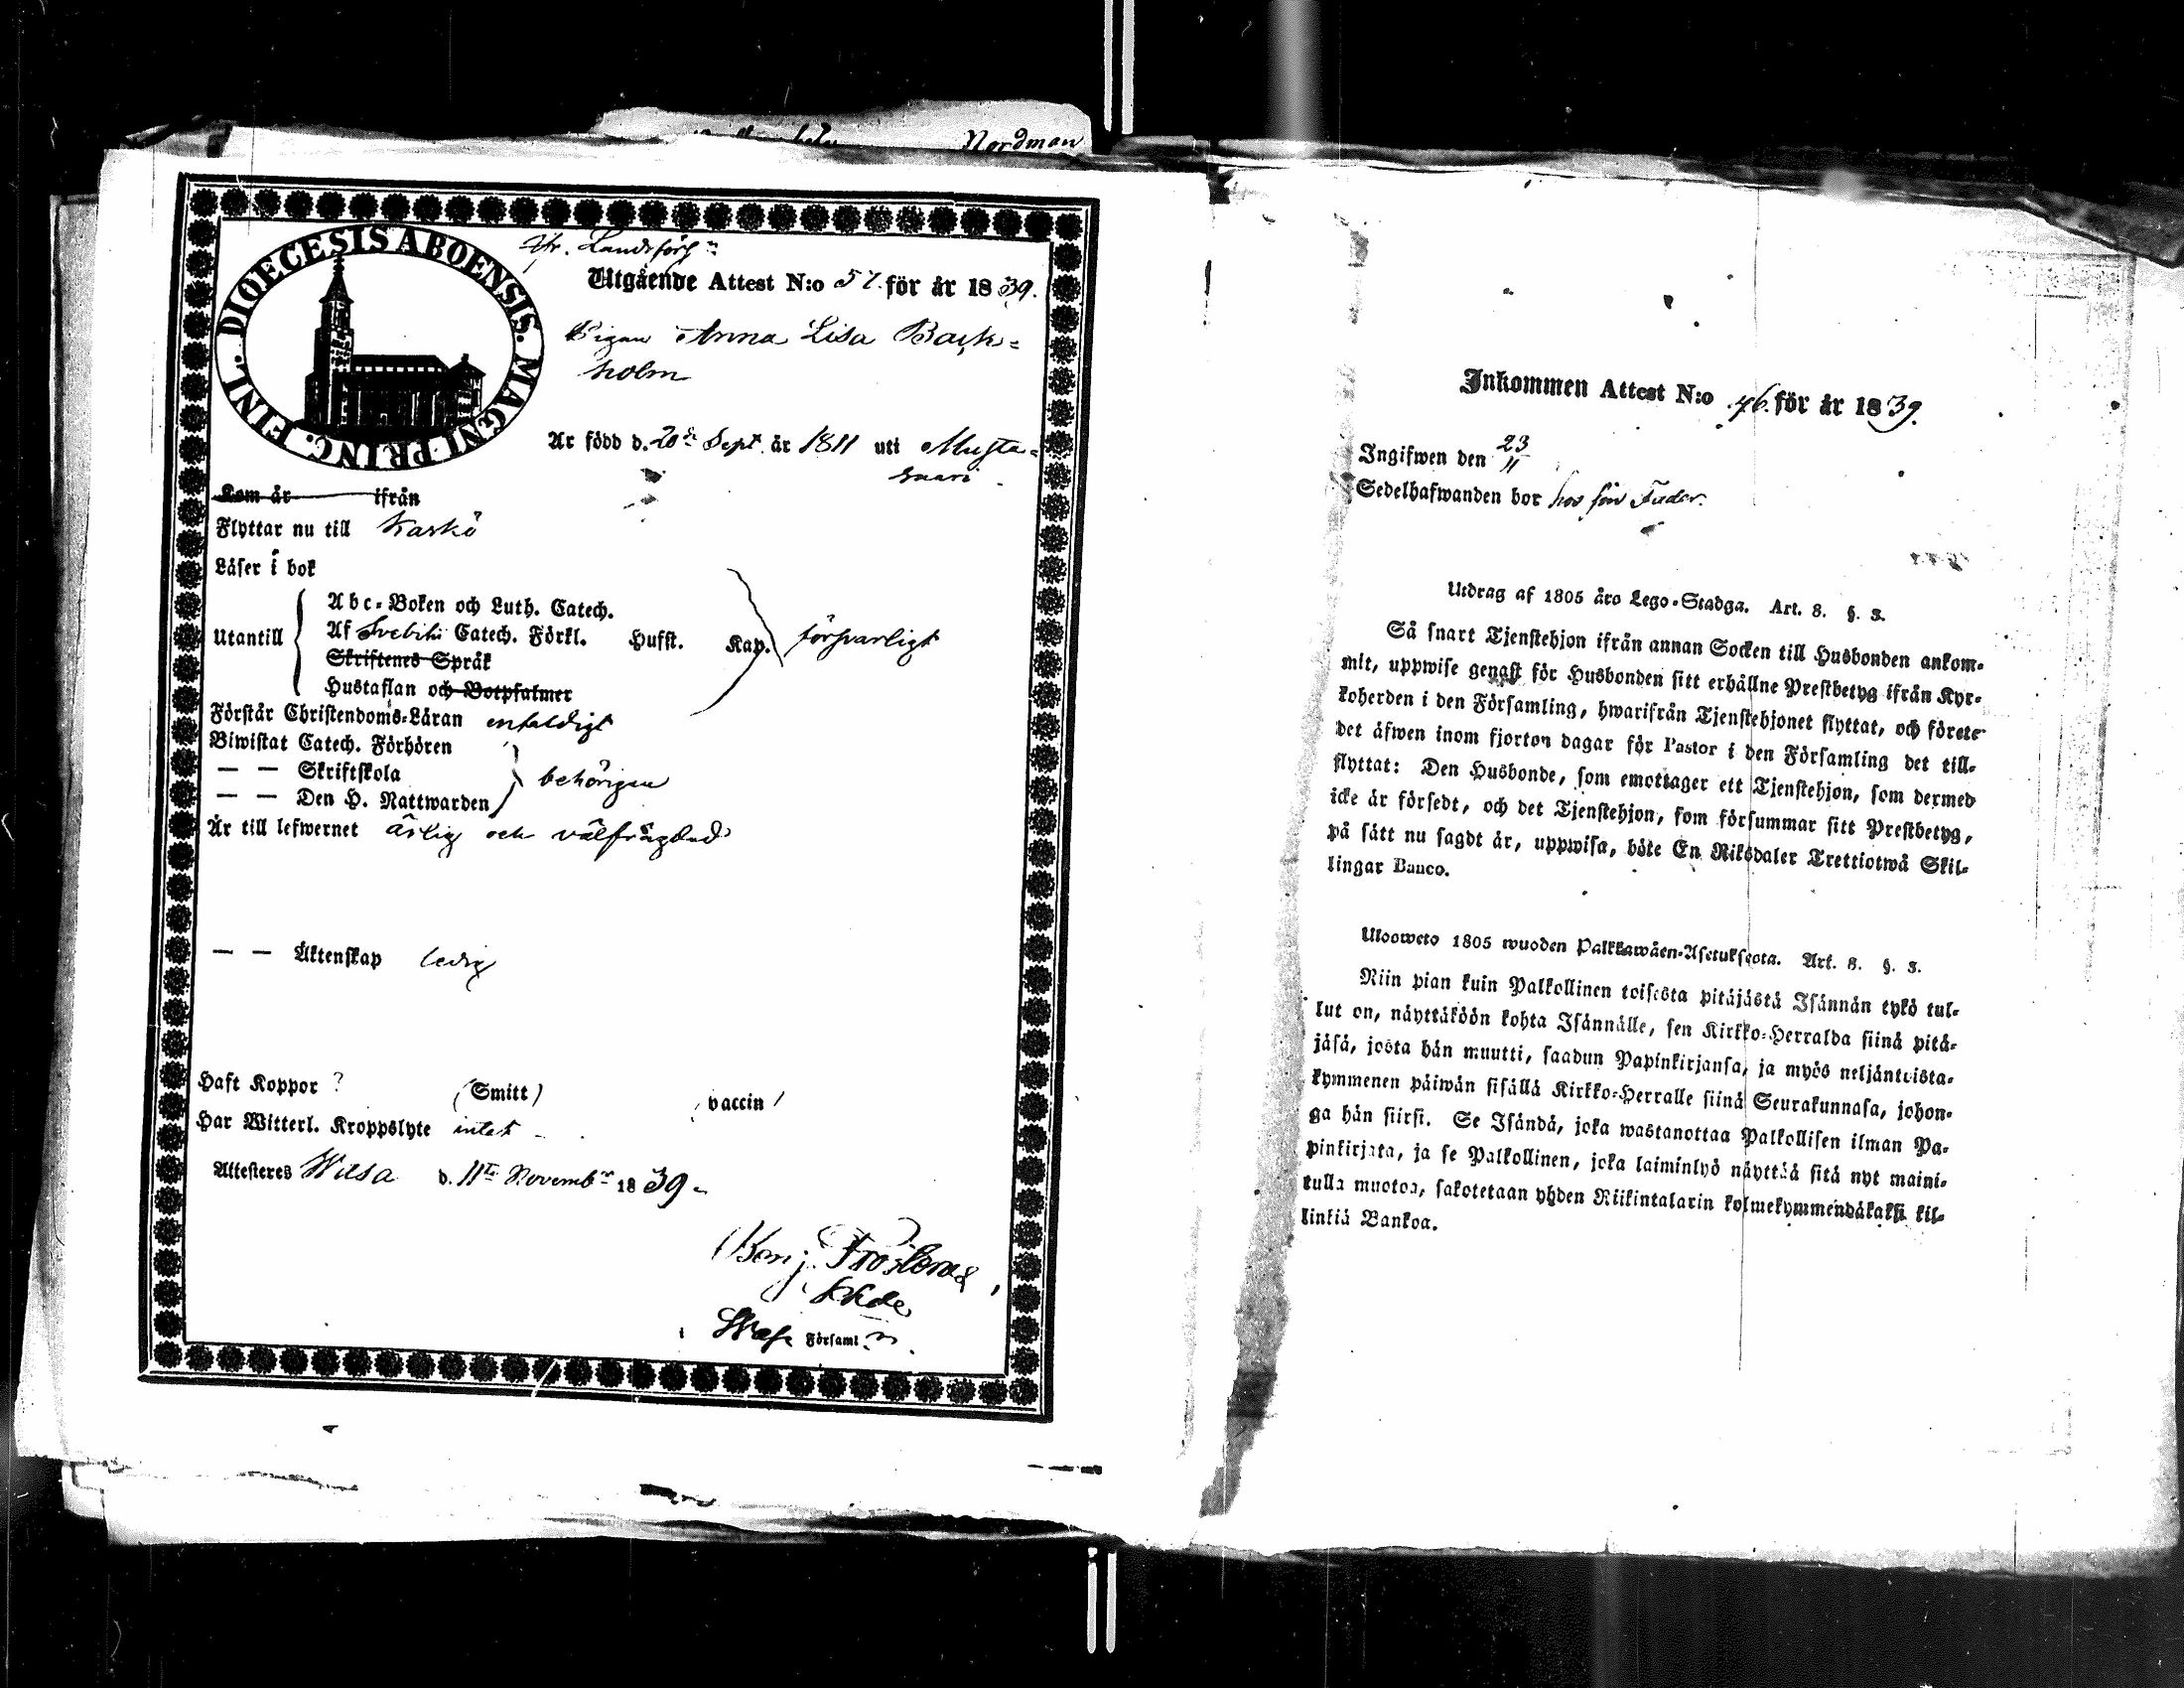 Nordman
DIOECESIS ABOENSIS. MAGNI PRINC. FINL.
fr. Landsförs:n
Utgående Attest N:o 57. för år 1839.
Pigan Anna Lisa Back=
holm
Är född d. 20de Sept. år 1811 uti Musta=
saari.
Kom år ifrån
Flyttar nu till Kaskö
Läser i bok
Utantill
Abc-Boken och Luth. Catech.
Af Svebilii Catech. Förkl. Husst. Kap. försvarligt
Skriftenes Språk
Hustaflan och Botpsalmer
Förstår Christendoms-Läran enfaldigt
Biwistat Catech. Förhören
— — Skriftskola
behörigen
— — Den H. Nattwarden
Är till lefwernet ärlig och välfrägdad
— — Äktenskap ledig
Haft Koppor ? (Smitt) (vaccin)
Har Witterl. Kroppslyte intet
Attesteres Wasa d. 11te Novemb:r 1839.
Benj. Frosterus,
Wasa Församl:n.
Inkommen Attest N:o 46. för år 1839.
Ingifwen den 23/11
Sedelhafwanden bor hos sin Fader.
Utdrag af 1805 års Lego-Stadga. Art. 8. §. 3.
Så snart Tjenstehjon ifrån annan Socken till Husbonden ankom-
mit, uppwise genast för Husbonden sitt erhållne Prestbetyg ifrån Kyr-
koherden i den Församling, hwarifrån Tjenstehjonet flyttat, och förete
det äfwen inom fjorton dagar för Pastor i den Församling det till-
flyttat: Den Husbonde, som emottager ett Tjenstehjon, som dermed
icke är försedt, och det Tjenstehjon, som försummar sitt Prestbetyg,
på sätt nu sagdt är, uppwisa, böte En Riksdaler Trettiotwå Skil-
lingar Banco.
Ulosweto 1805 wuoden Palkkawäen-Asetuksesta. Art. 8. §. 3.
Niin pian kuin Palkollinen toisesta pitäjästä Isännän tykö tul-
lut on, näyttäköön kohta Isännälle, sen Kirkko-Herralda siinä pitä-
jäsä, josta hän muutti, saadun Papinkirjansa, ja myös neljäntoista-
kymmenen päiwän sisällä Kirkko-Herralle siinä Seurakunnasa, johon-
ga hän siirsi. Se Isändä, joka wastanottaa Palkollisen ilman Pa-
pinkirjata, ja se Palkollinen, joka laiminlyö näyttää sitä nyt maini-
tulla muotoa, sakotetaan yhden Riikintalarin kolmekymmendäkaksi kil-
linkiä Bankoa.